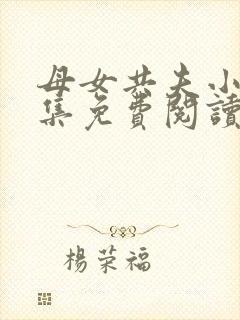 母女共夫小
集免費閱讀
楊荣福